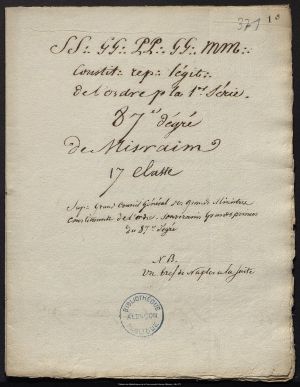 371 1°
SS∴ GG∴ PP∴ GG∴ MM∴
Constit∴ rep∴ légit∴
de l'ordre p la 1re Série.
87e dégré
de Misraim
17 Classe
Sup∴ Grand Conseil Général des Grands Ministres
Constituants de l'ordre, souverains Grands princes
du 87me dégré
N.B.
un bref de Naples à la suite
BIBLIOTHÈQUE
ALENÇON
PUBLIQUE